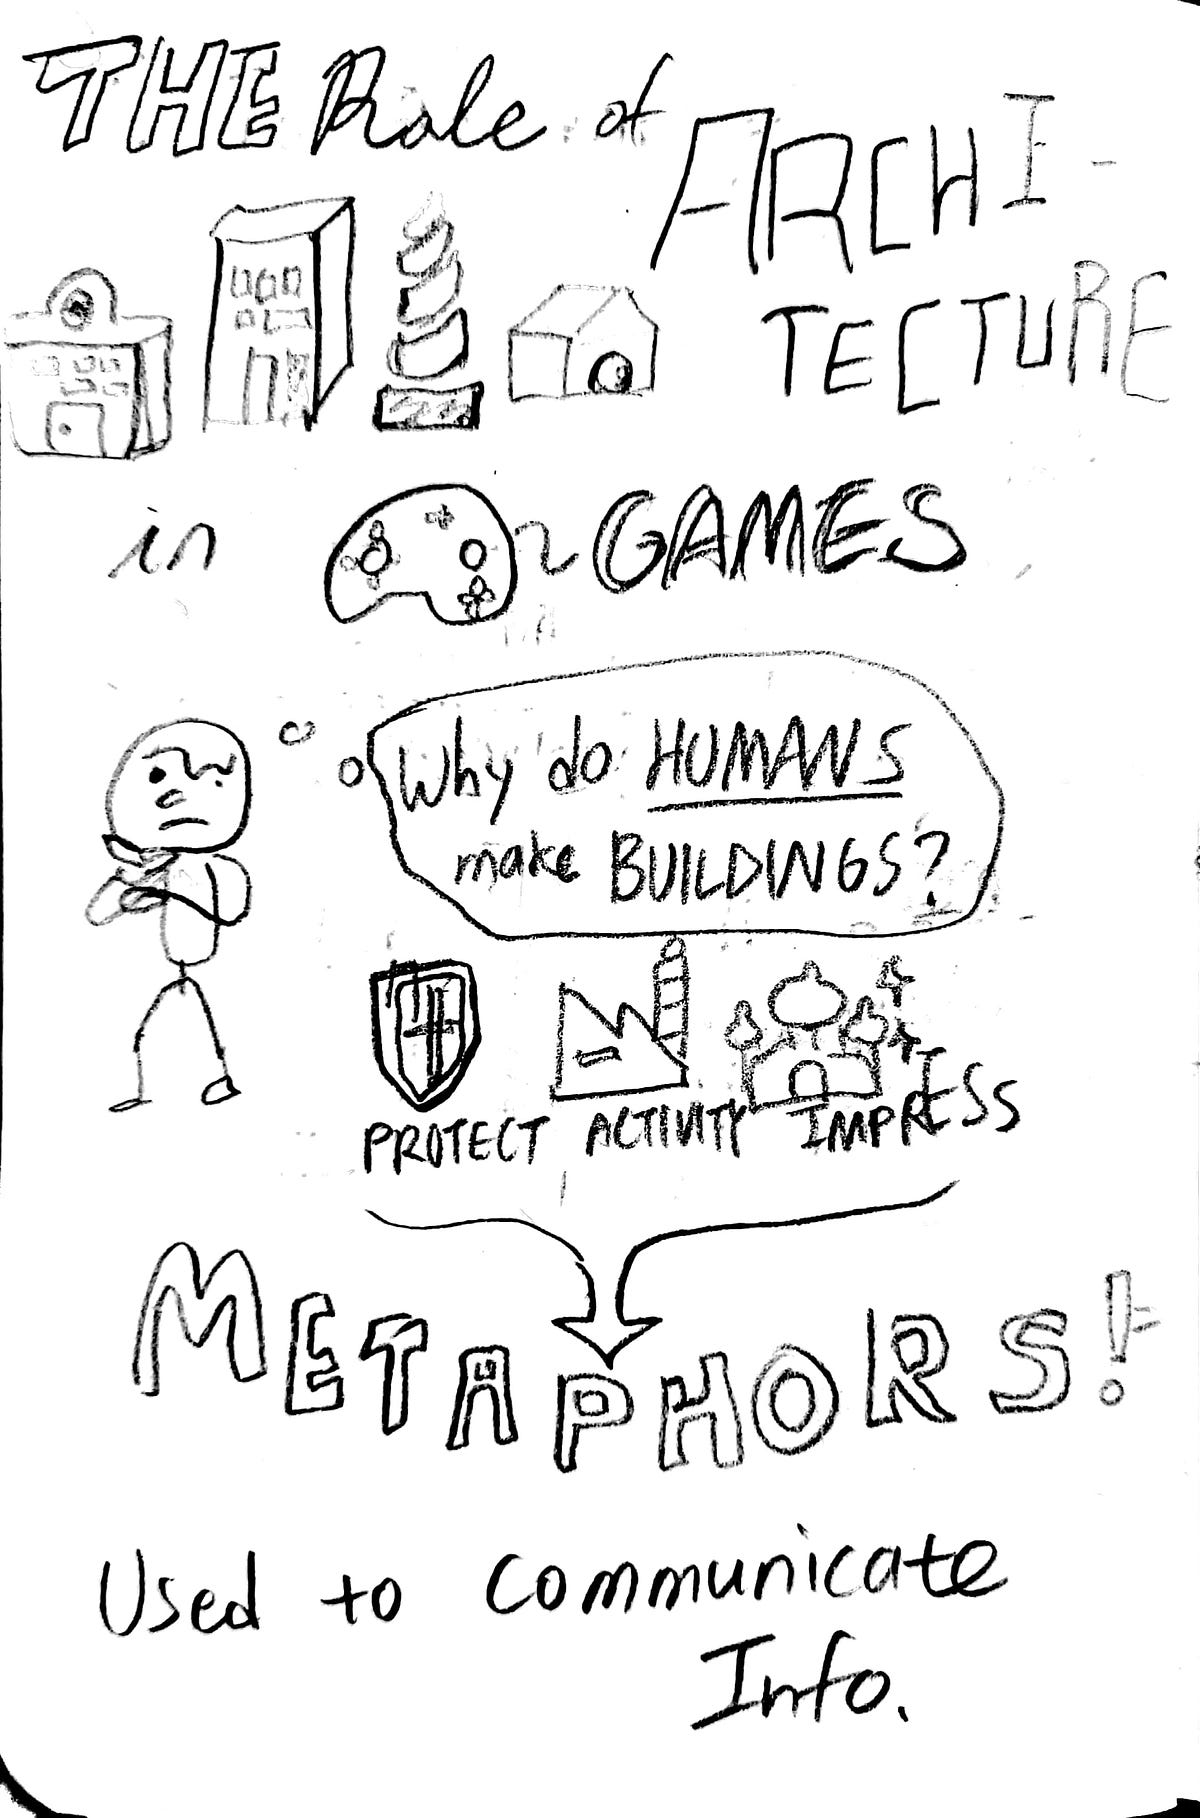 THE Role of ARCHI-
TECTURE
in GAMES
Why do HUMANS
make BUILDINGS?
PROTECT ACTIVITY IMPRESS
METAPHORS!
Used to communicate
Info.